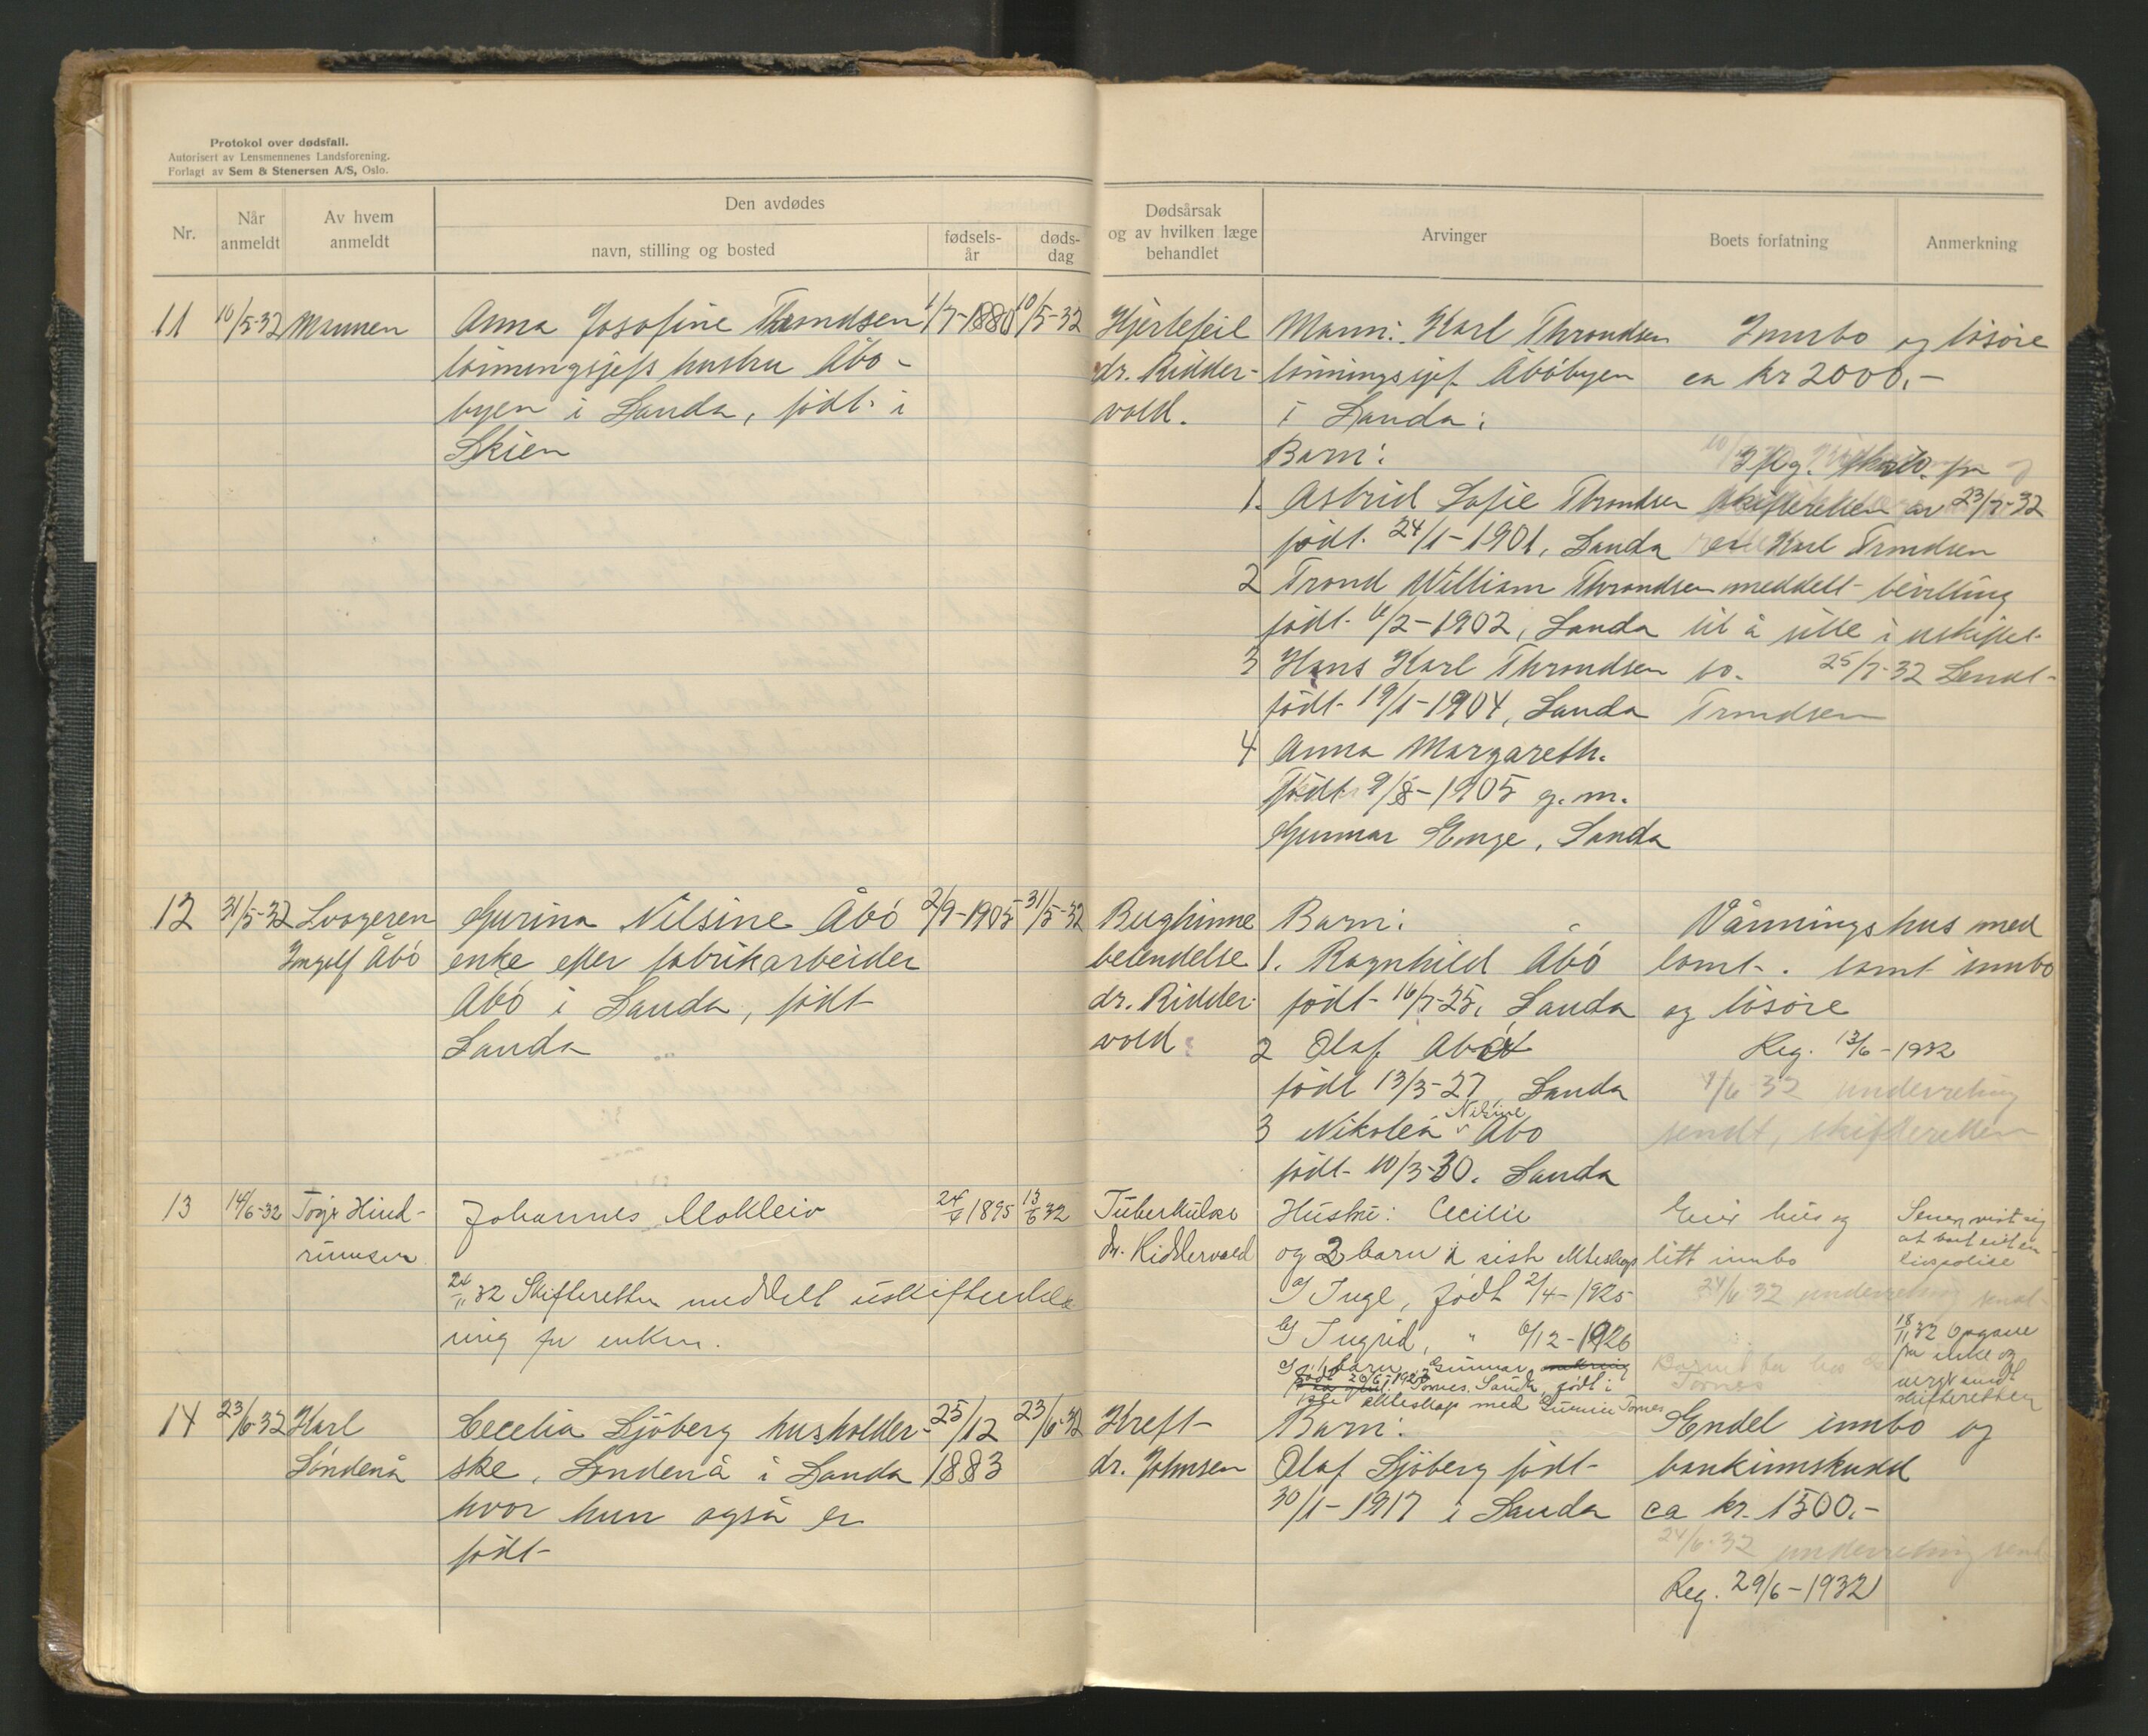 Protokol over dødsfall.
Autorisert av Lensmennenes Landsforening.
Forlagt av Sem & Stenersen A/S, Oslo.
Nr.
Når anmeldt
Av hvem anmeldt
Den avdødes
navn, stilling og bosted
fødsels-år
døds-dag
Dødsårsak og av hvilken læge behandlet
Arvinger
Boets forfatning
Anmerkning
11 10/5-32 Mannen
Anna Josofine Throndsen 1/7-1880 10/5-32
lønningsjefs hustru Åbø-
byen i Sauda, født i
Skien
Hjertefeil
dr. Ridder-
vold.
Mann: Karl Throndsen
lønningssjef Åbøbyen
i Sauda:
Barn:
1. Astrid Sofie Throndsen
født 24/1-1901, Sauda
2 Trond William Throndsen
født 6/2-1902, Sauda
3 Hans Karl Throndsen
født 19/1-1904, Sauda
4 Anna Margareth.
født 9/8-1905 g.m.
Gunnar Enge, Sauda
Innbo og løsøre
ca kr 2000,-
Ifølg. fra
skifteretten av 23/7-32
er Karl Trondsen
meddelt bevilling
til å sitte i uskiftet
bo. 25/7-32 Sendt
Trondsen
12 31/5-32 Svogeren
Ingolf Åbø
Gurina Nilsine Åbø 2/9-1905 31/5-32
enke efter fabrikarbeider
Åbø i Sauda, født
Sauda
Bughinne
betendelse
dr. Ridder-
vold
Barn:
1. Ragnhild Åbø
født 16/7-25, Sauda
2 Olaf Åbø
født 13/3-27, Sauda
3 Nikolea Åbø
født 10/3-30. Sauda
Våningshus med
tomt. samt innbo
og løsøre
Reg. 13/6-1932
4/6 32 underretning
sendt, skifteretten
13 14/6-32 Tøger Hind-
runnsen
Johannes Mokleiv 24/4 1895 13/6 32
24/11 32 Skifteretten meddelt uskifteerklæ
ring for enken.
Tuberkulose
dr. Riddervold
Hustru: Cecilie
og 2 barn i siste ekteskap
a) Inge, født 2/4-1925
b) Ingrid, " 6/12-1926
født 26/6-1920
Tornes. Sauda, født i
ekteskap med Gunnar Tornes
Eier hus og
litt innbo
24/6 32 underretning sendt
Barnet bor hos
Tornes
Senere vist sig
at boet eiet en
livspolise
18/11 32 Opgave
fra enke og
verge sendt
skifteretten
14 23/6-32 Karl
Søndenå
Cecelia Sjøberg husholder- 25/12 23/6-32
ske, Søndenå i Sauda 1883
hvor hun også er
født
Kreft
dr. Johnsen
Barn:
Olaf Sjøberg født
30/1-1917 i Sauda
Endel innbo og
bankinnskudd
ca kr. 1500.-
24/6-32 underretning sendt
Reg. 29/6-1932